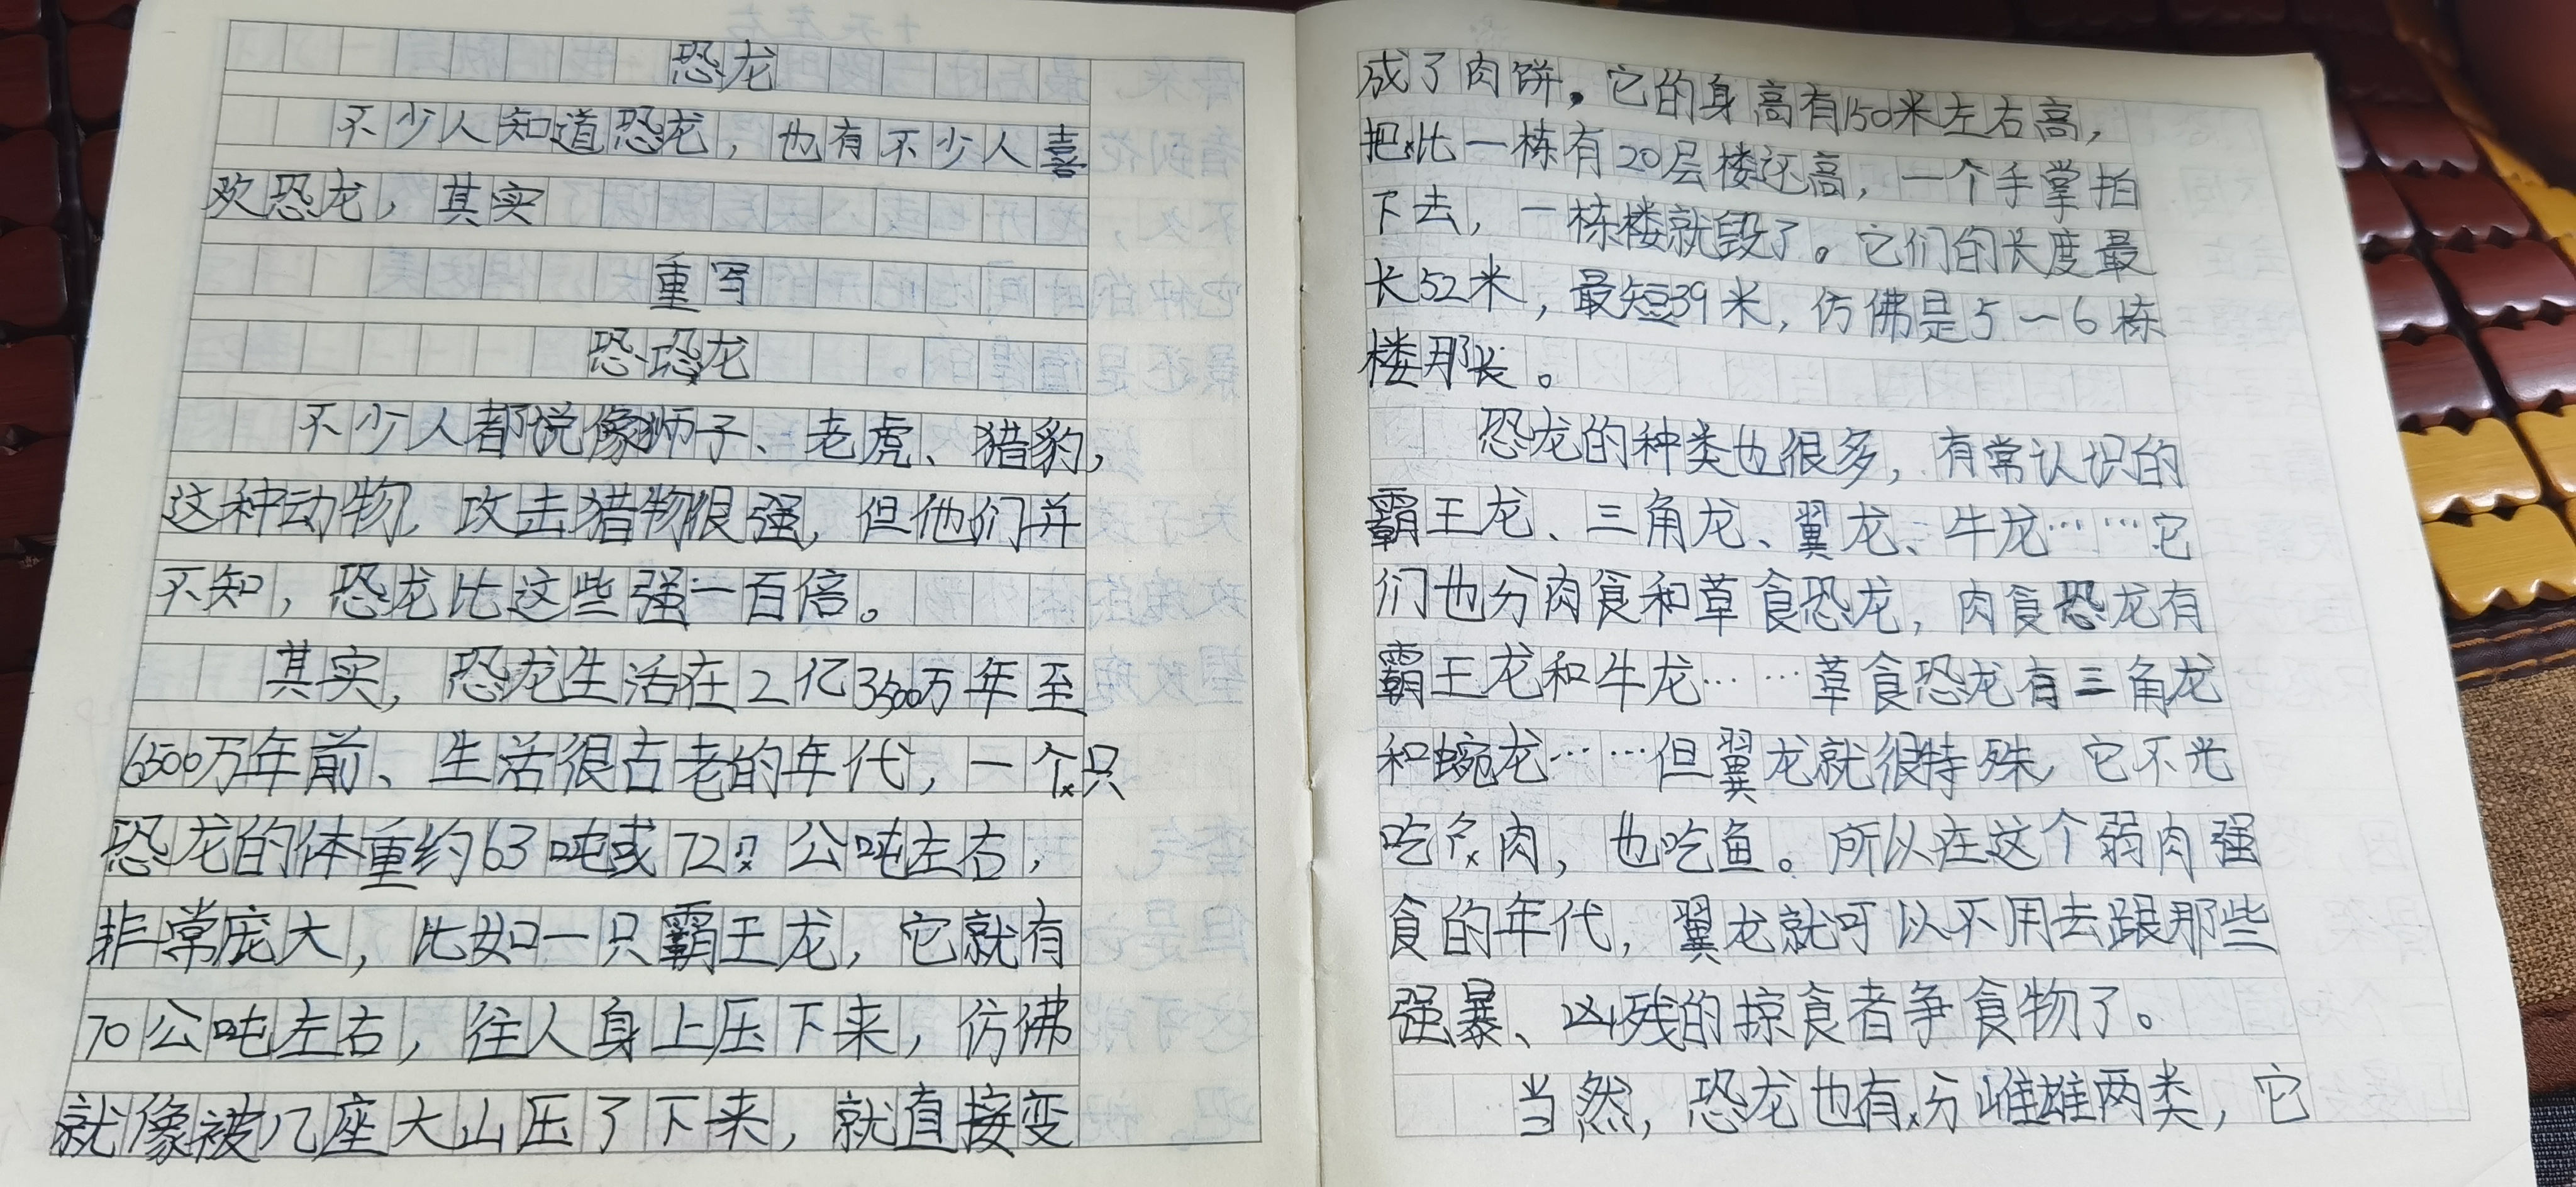 恐龙
不少人知道恐龙，也有不少人喜
欢恐龙，其实
重写
恐恐龙
不少人都说像狮子、老虎、猎豹，
这种动物，攻击猎物很强，但他们并
不知，恐龙比这些强一百倍。
其实，恐龙生活在2亿3500万年至
6500万年前、生活很古老的年代，一个只
恐龙的体重约63吨或72 公吨左右，
非常庞大，比如一只霸王龙，它就有
70公吨左右，往人身上压下来，仿佛
就像被几座大山压了下来，就直接变
成了肉饼。它的身高有150米左右高，
把比一栋有20层楼还高，一个手掌拍
下去，一栋楼就毁了。它们的长度最
长52米，最短39米，仿佛是5一6栋
楼那长。
恐龙的种类也很多，有常认识的
霸王龙、三角龙、翼龙、牛龙……它
们也分肉食和草食恐龙，肉食恐龙有
霸王龙和牛龙……草食恐龙有三角龙
和蜿龙……但翼龙就很特殊，它不光
吃 肉，也吃鱼。所以在这个弱肉强
食的年代，翼龙就可以不用去跟那些
强暴、凶残的掠食者争食物了。
当然，恐龙也有分雌雄两类，它